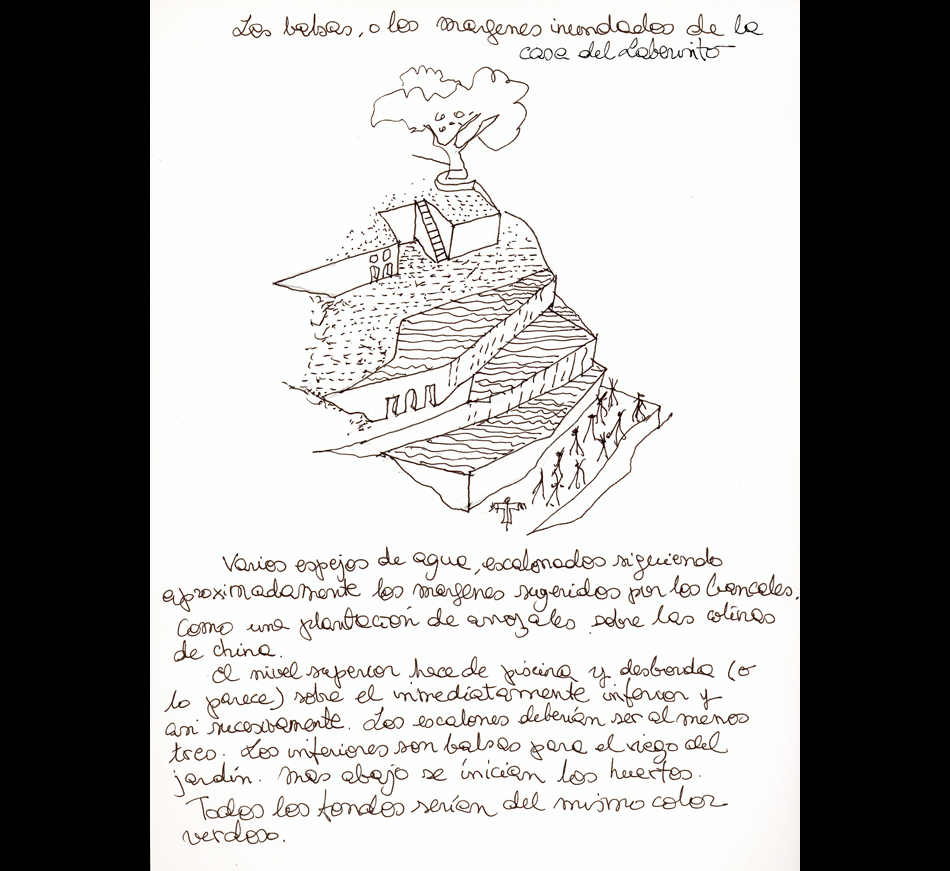 Las balsas, o los margenes inundados de la
casa del Laberinto
Varios espejos de agua, escalonados siguiendo
aproximadamente los margenes sugeridos por los bancales,
Como una plantación de arrozales sobre las colinas
de china.
El nivel superior hace de piscina y desborda (o
lo parece) sobre el inmediatamente inferior y
asi sucesivamente. Los escalones deberían ser al menos
tres. Los inferiores son balsas para el riego del
jardín. Mas abajo se inician los huertos.
Todos los fondos serían del mismo color
verdoso.